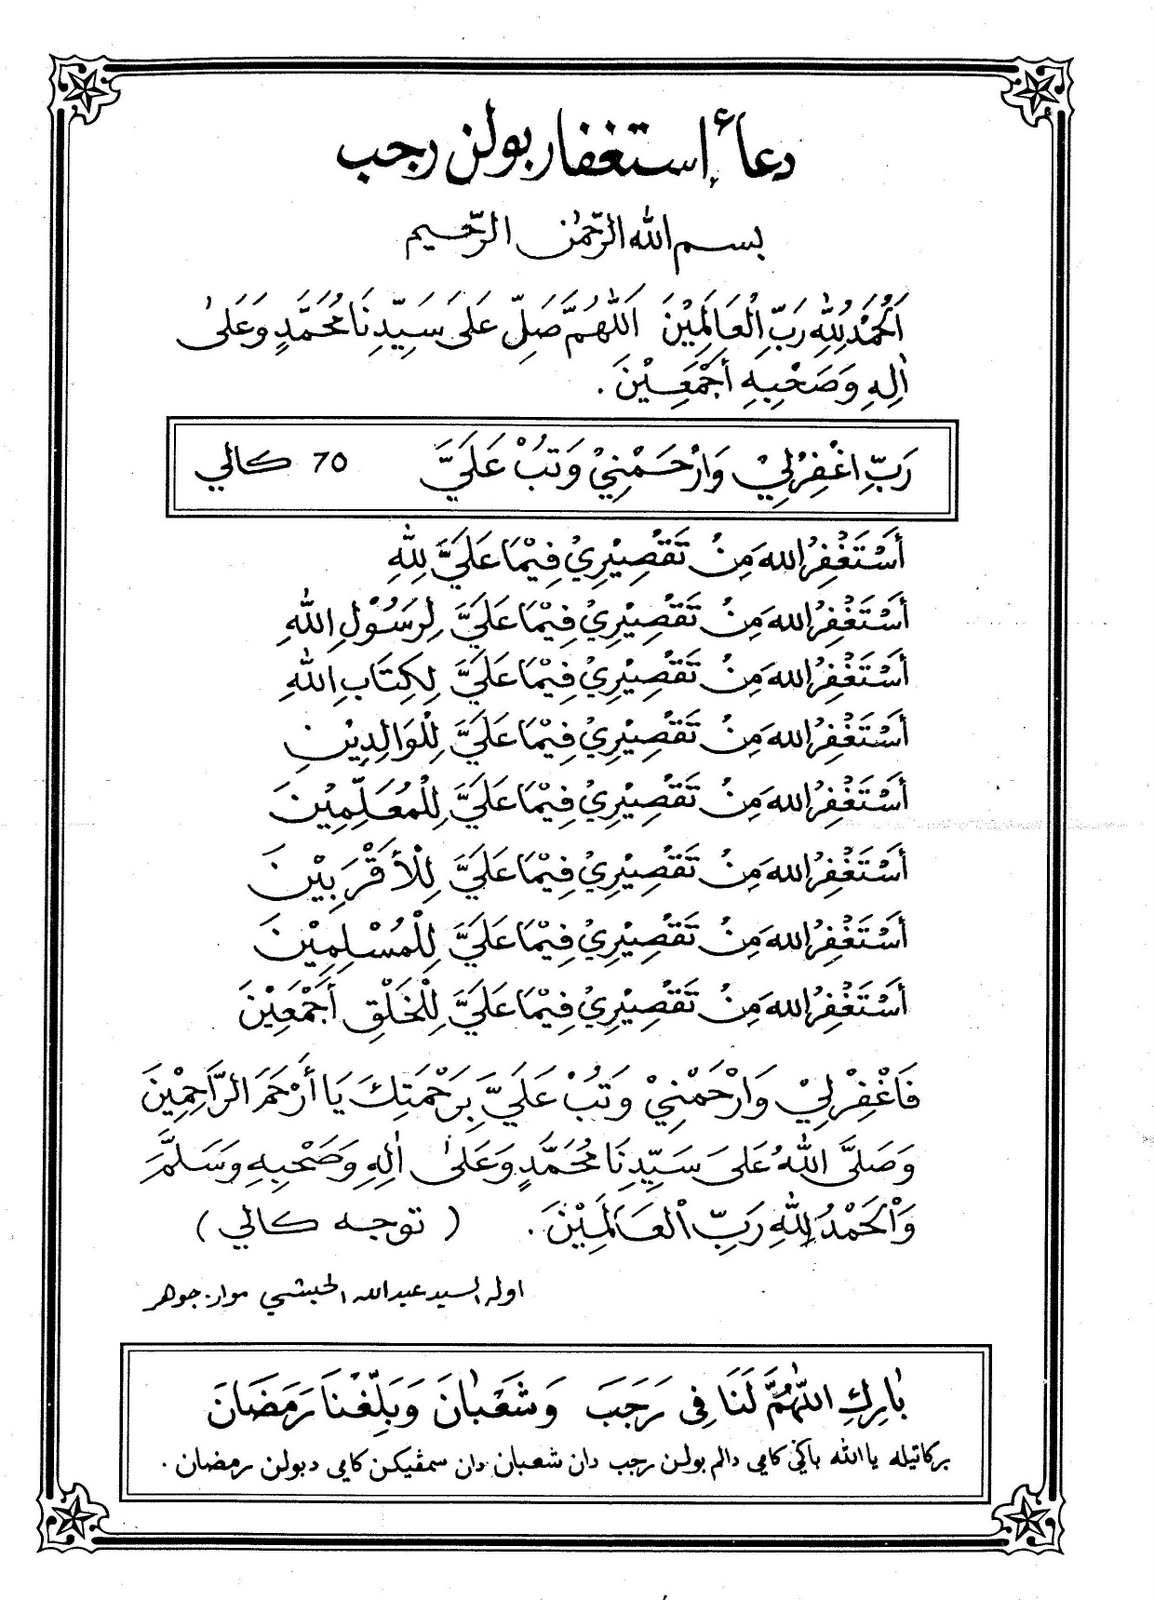 دعاء إستغفار بولن رجب
بسم الله الرّحمٰن الرّحيم
اَلْحَمْدُ لِلّٰهِ رَبِّ الْعَالَمِيْنَ اَللّٰهُمَّ صَلِّ عَلَى سَيِّدِنَا مُحَمَّدٍ وَعَلىٰ
اٰلِهِ وَصَحْبِهِ أَجْمَعِيْنَ .
رَبِّ اغْفِرْلِيْ وَارْحَمْنِيْ وَتُبْ عَلَيَّ 70 كالي
أَسْتَغْفِرُ الله مِنْ تَقْصِيْرِيْ فِيْمَا عَلَيَّ لِلّٰهِ
أَسْتَغْفِرُ الله مِنْ تَقْصِيْرِيْ فِيْمَا عَلَيَّ لِرَسُوْلِ اللّٰهِ
أَسْتَغْفِرُ الله مِنْ تَقْصِيْرِيْ فِيْمَا عَلَيَّ لِكِتَابِ اللّٰهِ
أَسْتَغْفِرُ الله مِنْ تَقْصِيْرِيْ فِيْمَا عَلَيَّ لِلْوَالِدِيْنِ
أَسْتَغْفِرُ الله مِنْ تَقْصِيْرِيْ فِيْمَا عَلَيَّ لِلْمُعَلِّمِيْنَ
أَسْتَغْفِرُ الله مِنْ تَقْصِيْرِيْ فِيْمَا عَلَيَّ لِلْأَقْرَبِيْنَ
أَسْتَغْفِرُ الله مِنْ تَقْصِيْرِيْ فِيْمَا عَلَيَّ لِلْمُسْلِمِيْنَ
أَسْتَغْفِرُ الله مِنْ تَقْصِيْرِيْ فِيْمَا عَلَيَّ لِلْخَلْقِ أَجْمَعِيْنَ
فَاغْفِرْلِيْ وَارْحَمْنِيْ وَتُبْ عَلَيَّ بِرَحْمَتِكَ يَا أَرْحَمَ الرَّاحِمِيْنَ
وَصَلَّى اللّٰهُ عَلَى سَيِّدِنَا مُحَمَّدٍ وَعَلىٰ اٰلِهِ وَصَحْبِهِ وَسَلَّمَ
وَالْحَمْدُ لِلّٰهِ رَبِّ الْعَالَمِيْنَ . ( توجه كالي )
اوله السيد عبدالله الحبشي موار.جوهر
بَارِكِ اللّٰهُمَّ لَنَا فِى رَجَبَ وَشَعْبَانَ وَبَلِّغْنَا رَمَضَانَ
بركاتيله يا الله باڬي كامي دالم بولن رجب دان شعبان دان سمڤيكن كامي دبولن رمضان .